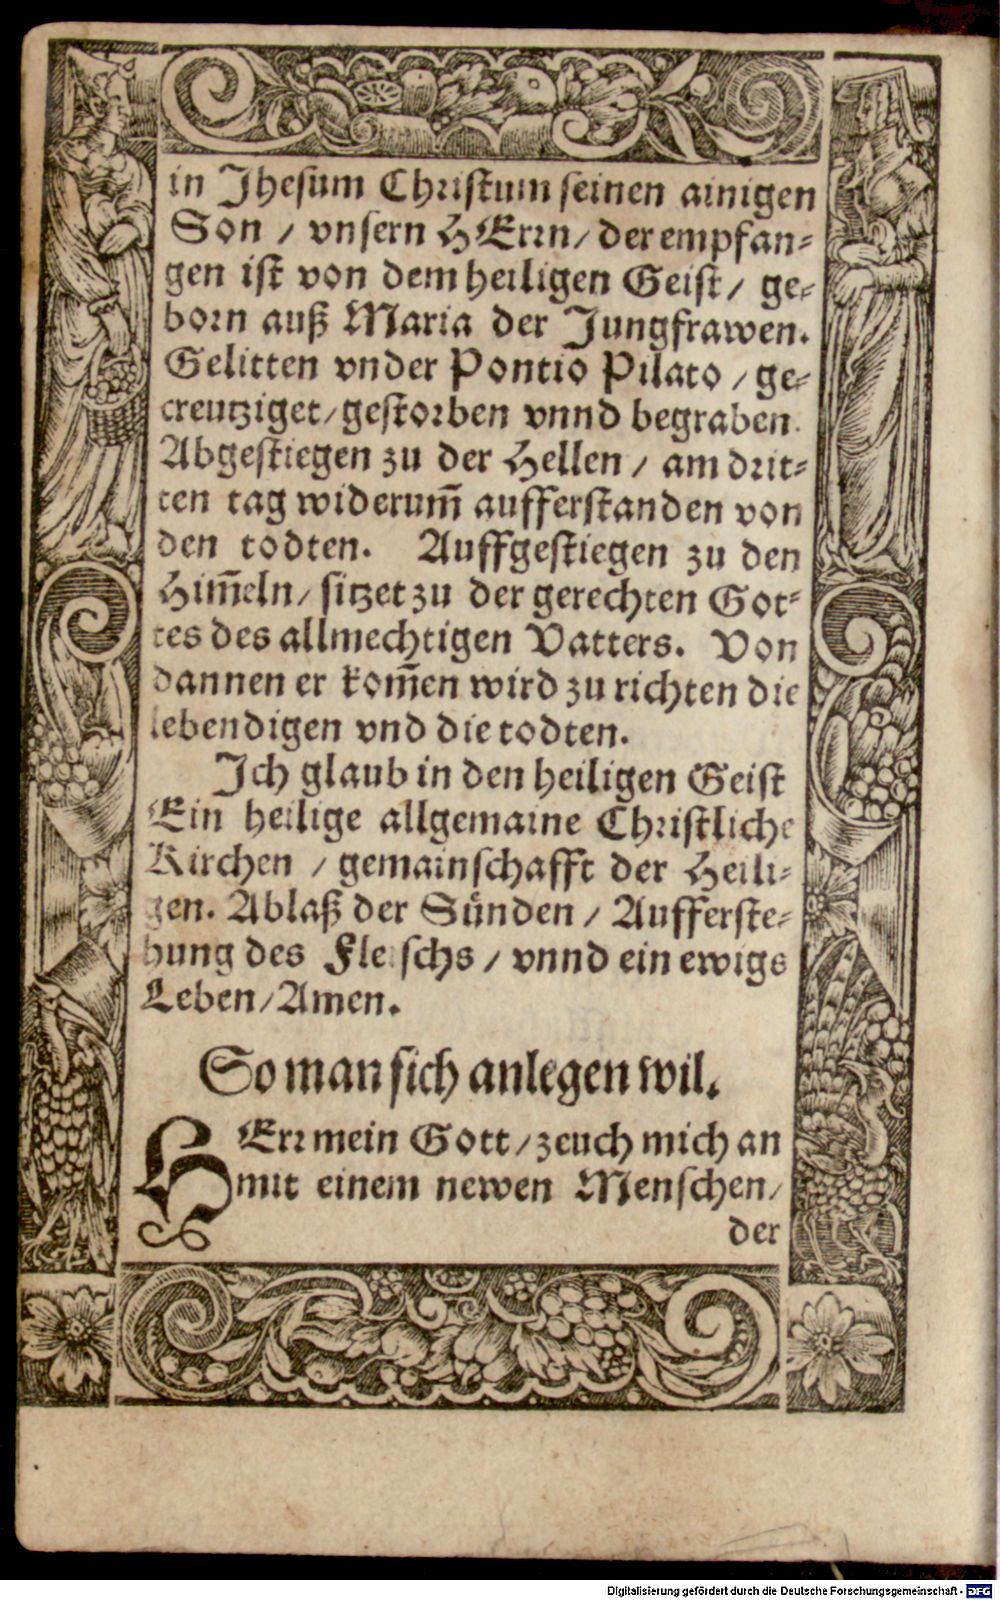 in Jhesum Christum seinen ainigen
Son / vnsern HErrn / der empfan⸗
gen ist von dem heiligen Geist / ge⸗
born auß Maria der Jungfrawen.
Gelitten vnder Pontio Pilato / ge⸗
creutziget / gestorben vnnd begraben.
Abgestiegen zu der Hellen / am drit⸗
ten tag widerum̃ aufferstanden von
den todten. Auffgestiegen zu den
Him̃eln / sitzet zu der gerechten Got⸗
tes des allmechtigen Vatters. Von
dannen er kom̃en wird zu richten die
lebendigen vnd die todten.
Jch glaub in den heiligen Geist
Ein heilige allgemaine Christliche
Kirchen / gemainschafft der Heili⸗
gen. Ablaß der Sünden / Aufferste⸗
hung des Fleischs / vnnd ein ewigs
Leben / Amen.
So man sich anlegen wil.
HErr mein Gott / zeuch mich an
mit einem newen Menschen /
der
Digitalisierung gefördert durch die Deutsche Forschungsgemeinschaft - DFG